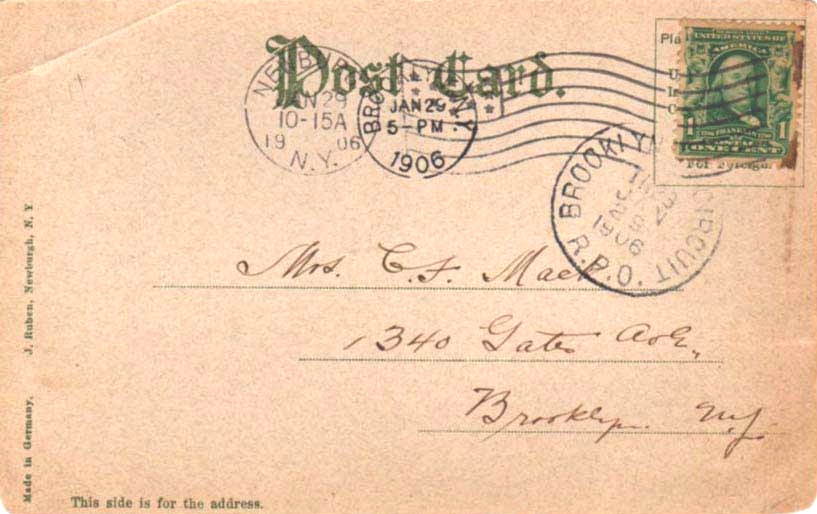 Post Card.
NEWBURGH
JAN 29
10-15A
19 06
N.Y.
BROOKLYN, N.Y.
JAN 29
5-PM
1906
UNITED STATES OF
AMERICA
1 FRANKLIN 1
ONE CENT
For Foreign.
BROOKLYN CIRCUIT.
1906
R.P.O.
Mrs. C. F. Mack
1340 Gates Ave,
Brooklyn. N.Y.
Made in Germany. J. Ruben, Newburgh, N. Y
This side is for the address.